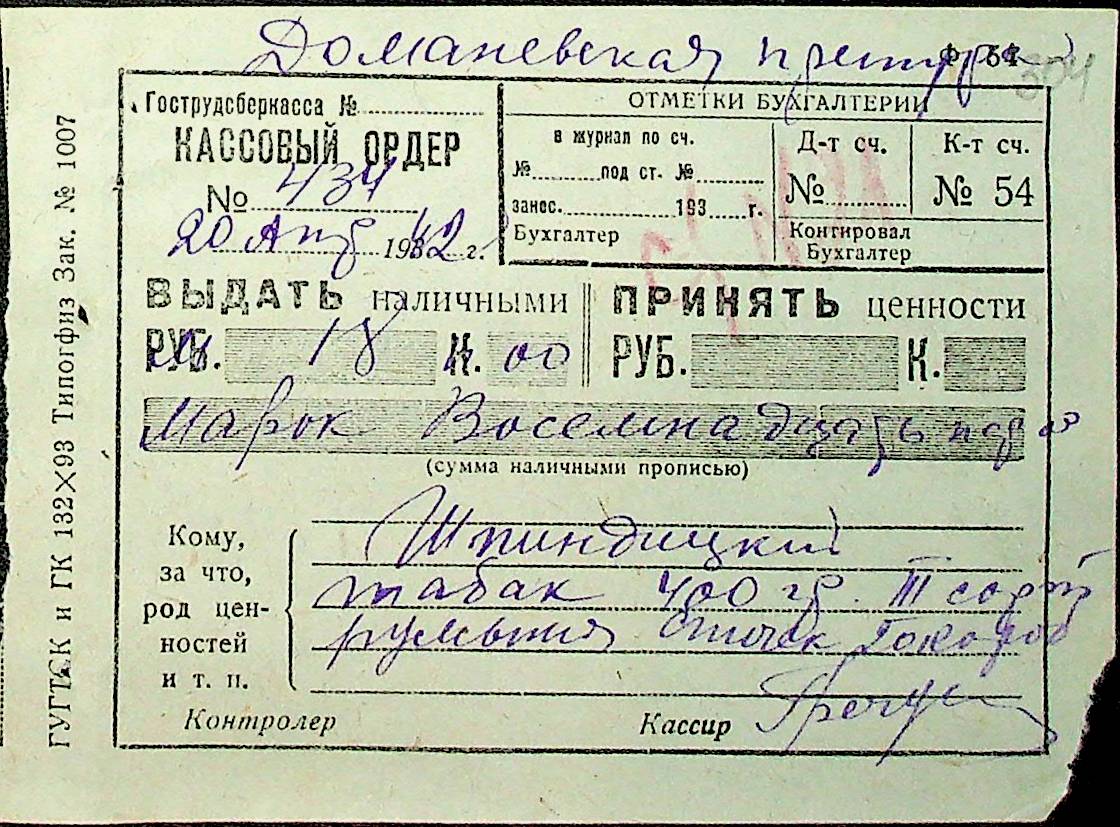 Доманевская претура
Ф. № 54
Гострудсберкасса №
КАССОВЫЙ ОРДЕР
№ 434
20 Апр 1942 г.
ОТМЕТКИ БУХГАЛТЕРИИ
в журнал по сч.
№ под ст. №
занес. 193 г.
Бухгалтер
Д-т сч.
№
К-т сч.
№ 54
Контировал
Бухгалтер
ВЫДАТЬ наличными
РУБ. 18 К. 00
ПРИНЯТЬ ценности
РУБ. К.
Марок Восемнадцать
(сумма наличными прописью)
Кому,
за что,
род цен-
ностей
и т. п.
Шпиндицкий
табак 400 гр. III сорт
спичек
Контролер
Кассир
ГУГТСК и ГК 132×93 Типогфиз Зак. № 1007